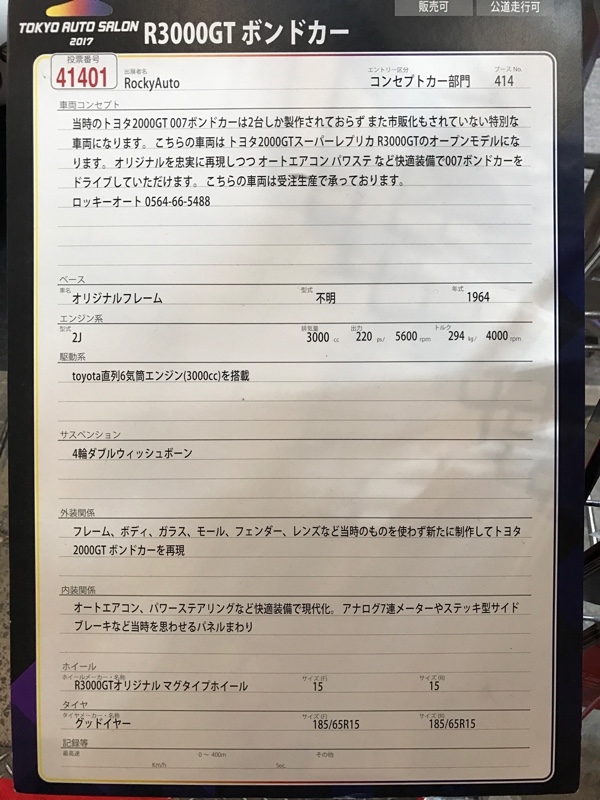 販売可 公道走行可
TOKYO AUTO SALON
2017
R3000GT ボンドカー
投票番号
41401
出展者名
RockyAuto
エントリー区分
コンセプトカー部門
ブース No.
414
車両コンセプト
当時のトヨタ2000GT 007ボンドカーは2台しか製作されておらず また市販化もされていない特別な
車両になります。 こちらの車両は トヨタ2000GTスーパーレプリカ R3000GTのオープンモデルにな
ります。 オリジナルを忠実に再現しつつ オートエアコン パワステ など快適装備で007ボンドカーを
ドライブしていただけます。 こちらの車両は受注生産で承っております。
ロッキーオート 0564-66-5488
ベース
車名 オリジナルフレーム 型式 不明 年式 1964
エンジン系
型式 2J 排気量 3000 cc 出力 220 ps/ 5600 rpm トルク 294 kg/ 4000 rpm
駆動系
toyota直列6気筒エンジン(3000cc)を搭載
サスペンション
4輪ダブルウィッシュボーン
外装関係
フレーム、ボディ、ガラス、モール、フェンダー、レンズなど当時のものを使わず新たに制作してトヨタ
2000GT ボンドカーを再現
内装関係
オートエアコン、パワーステアリングなど快適装備で現代化。 アナログ7連メーターやステッキ型サイド
ブレーキなど当時を思わせるパネルまわり
ホイール
ホイールメーカー・名称 サイズ(F) サイズ(R)
R3000GTオリジナル マグタイプホイール 15 15
タイヤ
タイヤメーカー・名称 サイズ(F) サイズ(R)
グッドイヤー 185/65R15 185/65R15
記録等
最高速 Km/h 0 〜 400m Sec その他